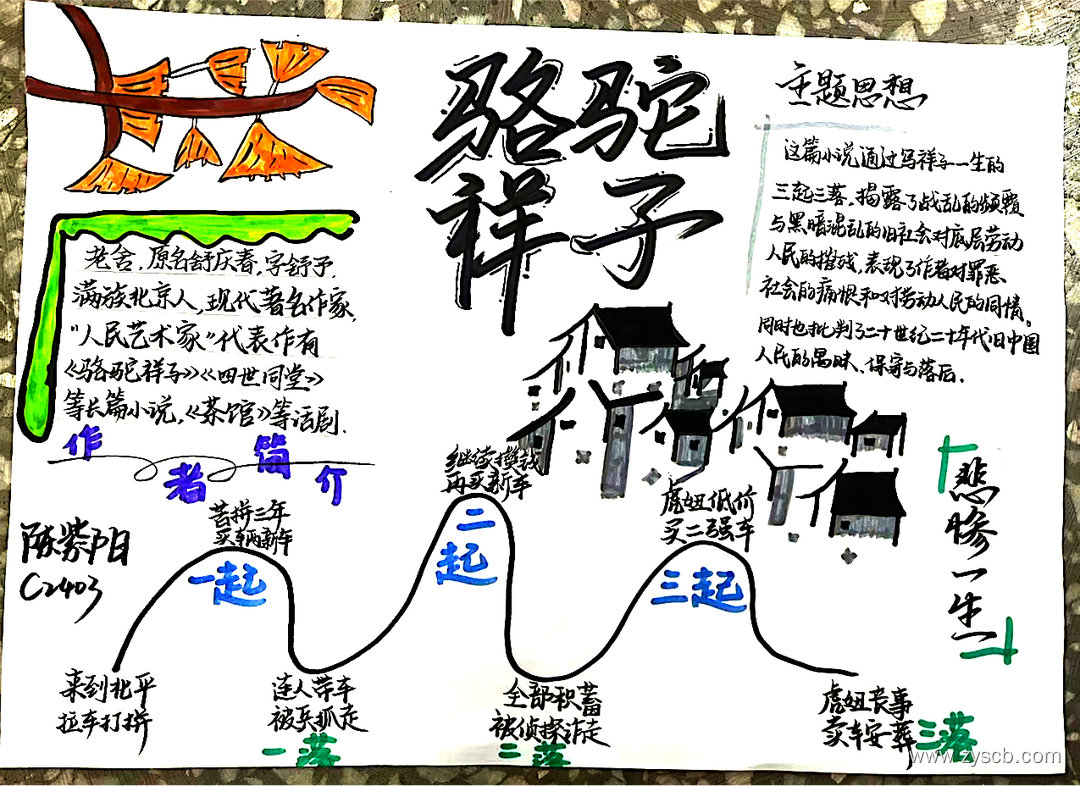 骆驼
祥子
主题思想
这篇小说通过写祥子一生的
三起三落,揭露了战乱的频覆
与黑暗混乱的旧社会对底层劳动
人民的摧残,表现了作者对罪恶
社会的痛恨和对劳动人民的同情。
同时也批判了二十世纪二十年代旧中国
人民的愚昧、保守与落后.
老舍,原名舒庆春,字舒予,
满族北京人,现代著名作家,
"人民艺术家"代表作有
《骆驼祥子》《四世同堂》
等长篇小说,《茶馆》等话剧.
作者简介
陈紫阳
C2403
来到北平
拉车打拼
苦拼三年
买车俩新车
一起
连人带车
被兵抓走
一落
继续攒钱
再买新车
二起
全部积蓄
被侦探诈走
二落
虎妞低价
买二强车
三起
虎妞丧事
卖车安葬
三落
悲惨一生
www.zyscb.com